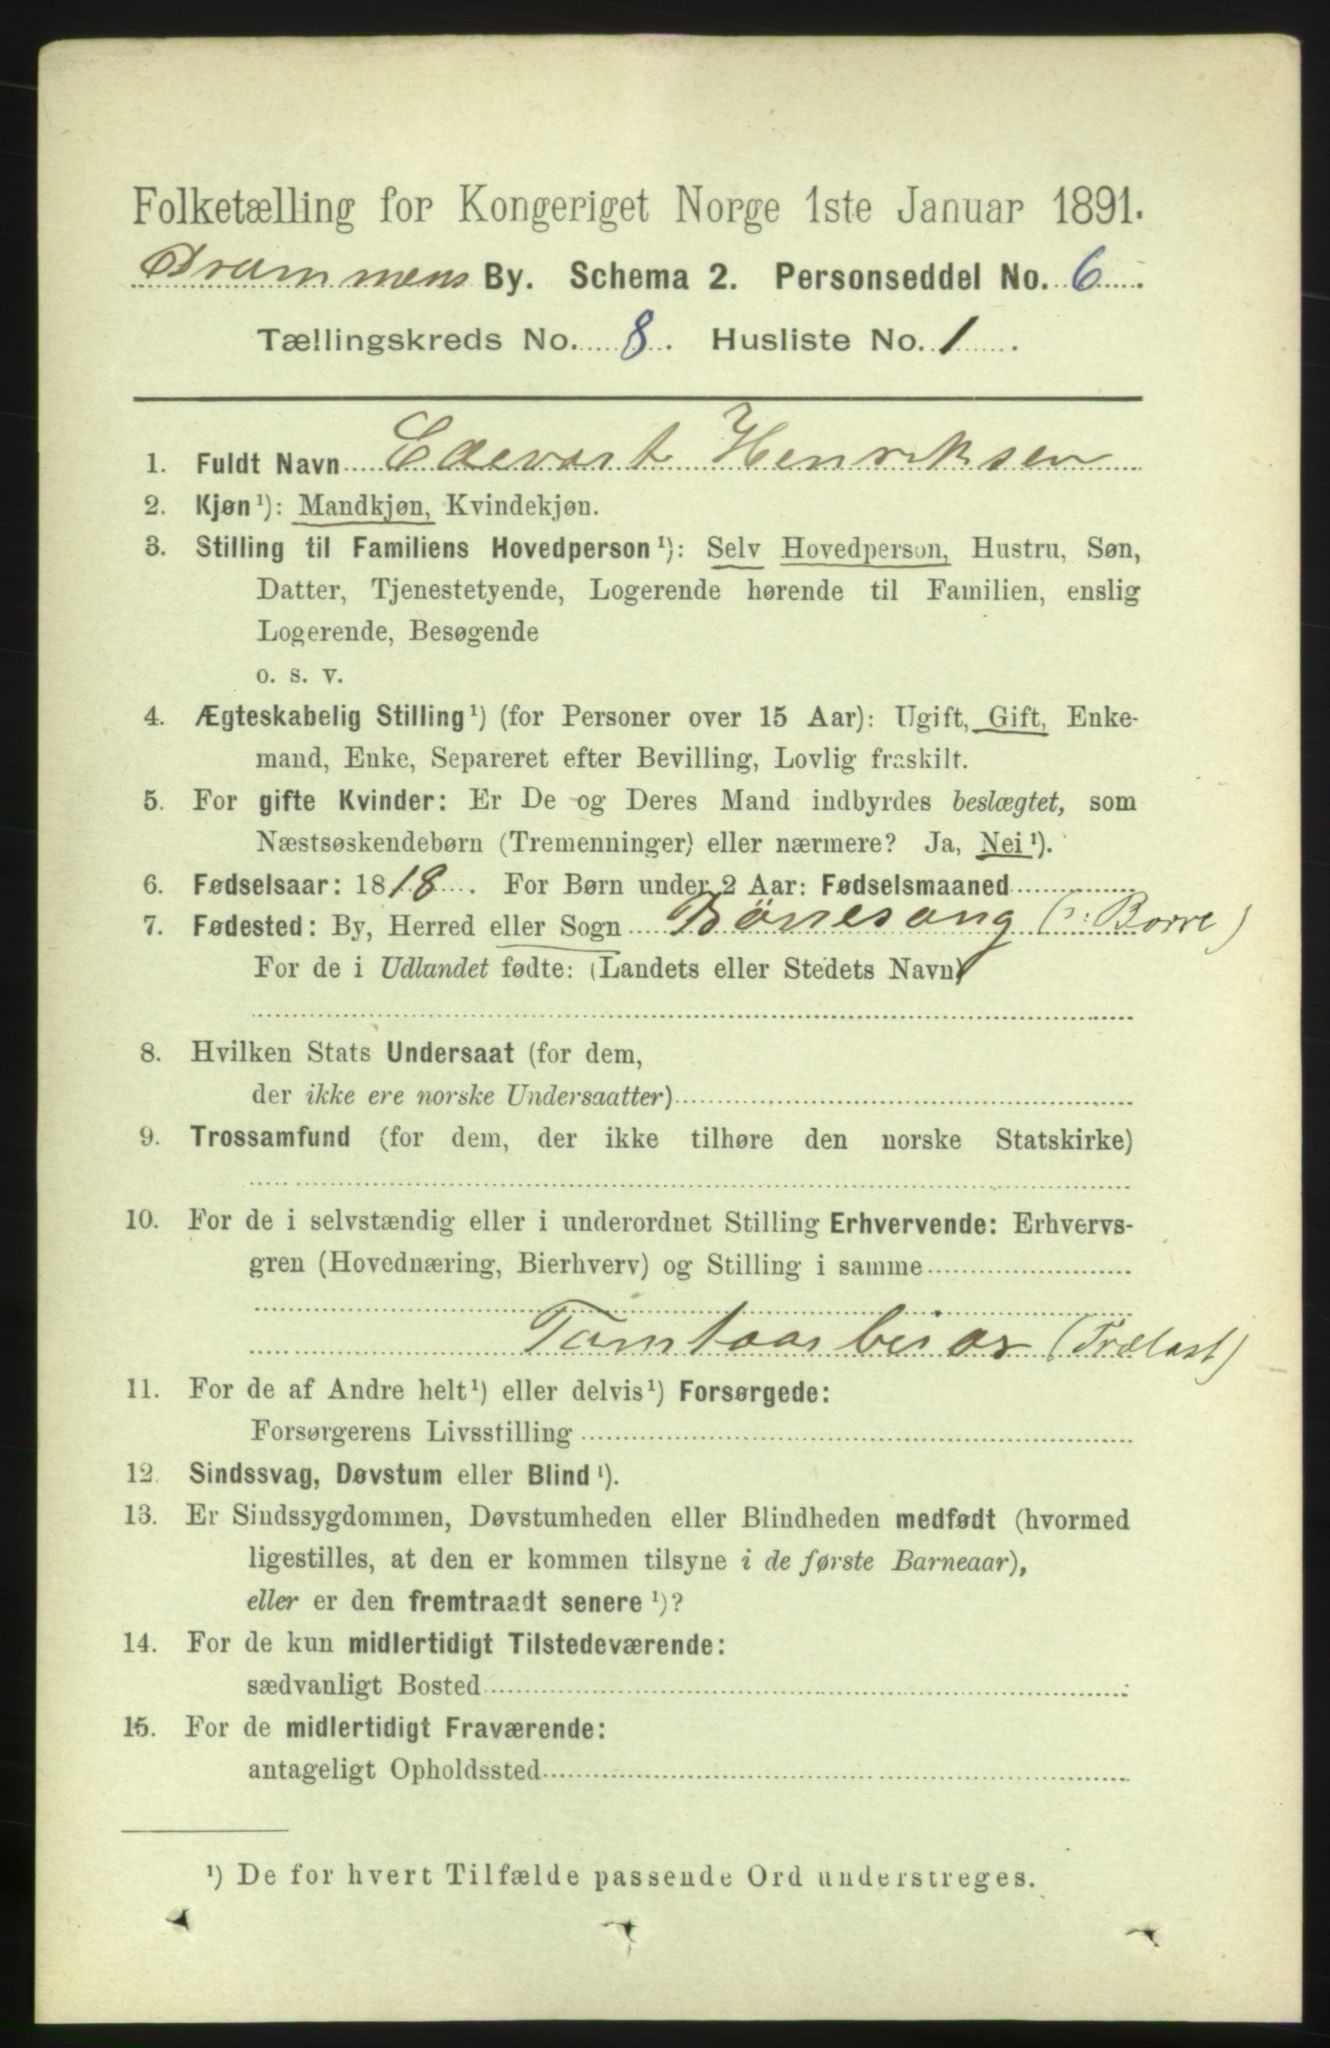 Folketælling for Kongeriget Norge 1ste Januar 1891.
Drammens By. Schema 2. Personseddel No. 6
Tællingskreds No. 8. Husliste No. 1.
1. Fuldt Navn Edevart Henriksen
2. Kjøn¹): Mandkjøn, Kvindekjøn.
3. Stilling til Familiens Hovedperson¹): Selv Hovedperson, Hustru, Søn,
Datter, Tjenestetyende, Logerende hørende til Familien, enslig
Logerende, Besøgende
o. s. v.
4. Ægteskabelig Stilling¹) (for Personer over 15 Aar): Ugift, Gift, Enke-
mand, Enke, Separeret efter Bevilling, Lovlig fraskilt.
5. For gifte Kvinder: Er De og Deres Mand indbyrdes beslægtet, som
Næstsøskendebørn (Tremenninger) eller nærmere? Ja, Nei¹).
6. Fødselsaar: 1818. For Børn under 2 Aar: Fødselsmaaned
7. Fødested: By, Herred eller Sogn Börresong (ɔ: Borre)
For de i Udlandet fødte: (Landets eller Stedets Navn)
8. Hvilken Stats Undersaat (for dem,
der ikke ere norske Undersaatter)
9. Trossamfund (for dem, der ikke tilhøre den norske Statskirke)
10. For de i selvstændig eller i underordnet Stilling Erhvervende: Erhvervs-
gren (Hovednæring, Bierhverv) og Stilling i samme
Tomtaarbeior (Trælast)
11. For de af Andre helt¹) eller delvis¹) Forsørgede:
Forsørgerens Livsstilling
12. Sindssvag, Døvstum eller Blind¹).
13. Er Sindssygdommen, Døvstumheden eller Blindheden medfødt (hvormed
ligestilles, at den er kommen tilsyne i de første Barneaar),
eller er den fremtraadt senere¹)?
14. For de kun midlertidigt Tilstedeværende:
sædvanligt Bosted
15. For de midlertidigt Fraværende:
antageligt Opholdssted
¹) De for hvert Tilfælde passende Ord understreges.